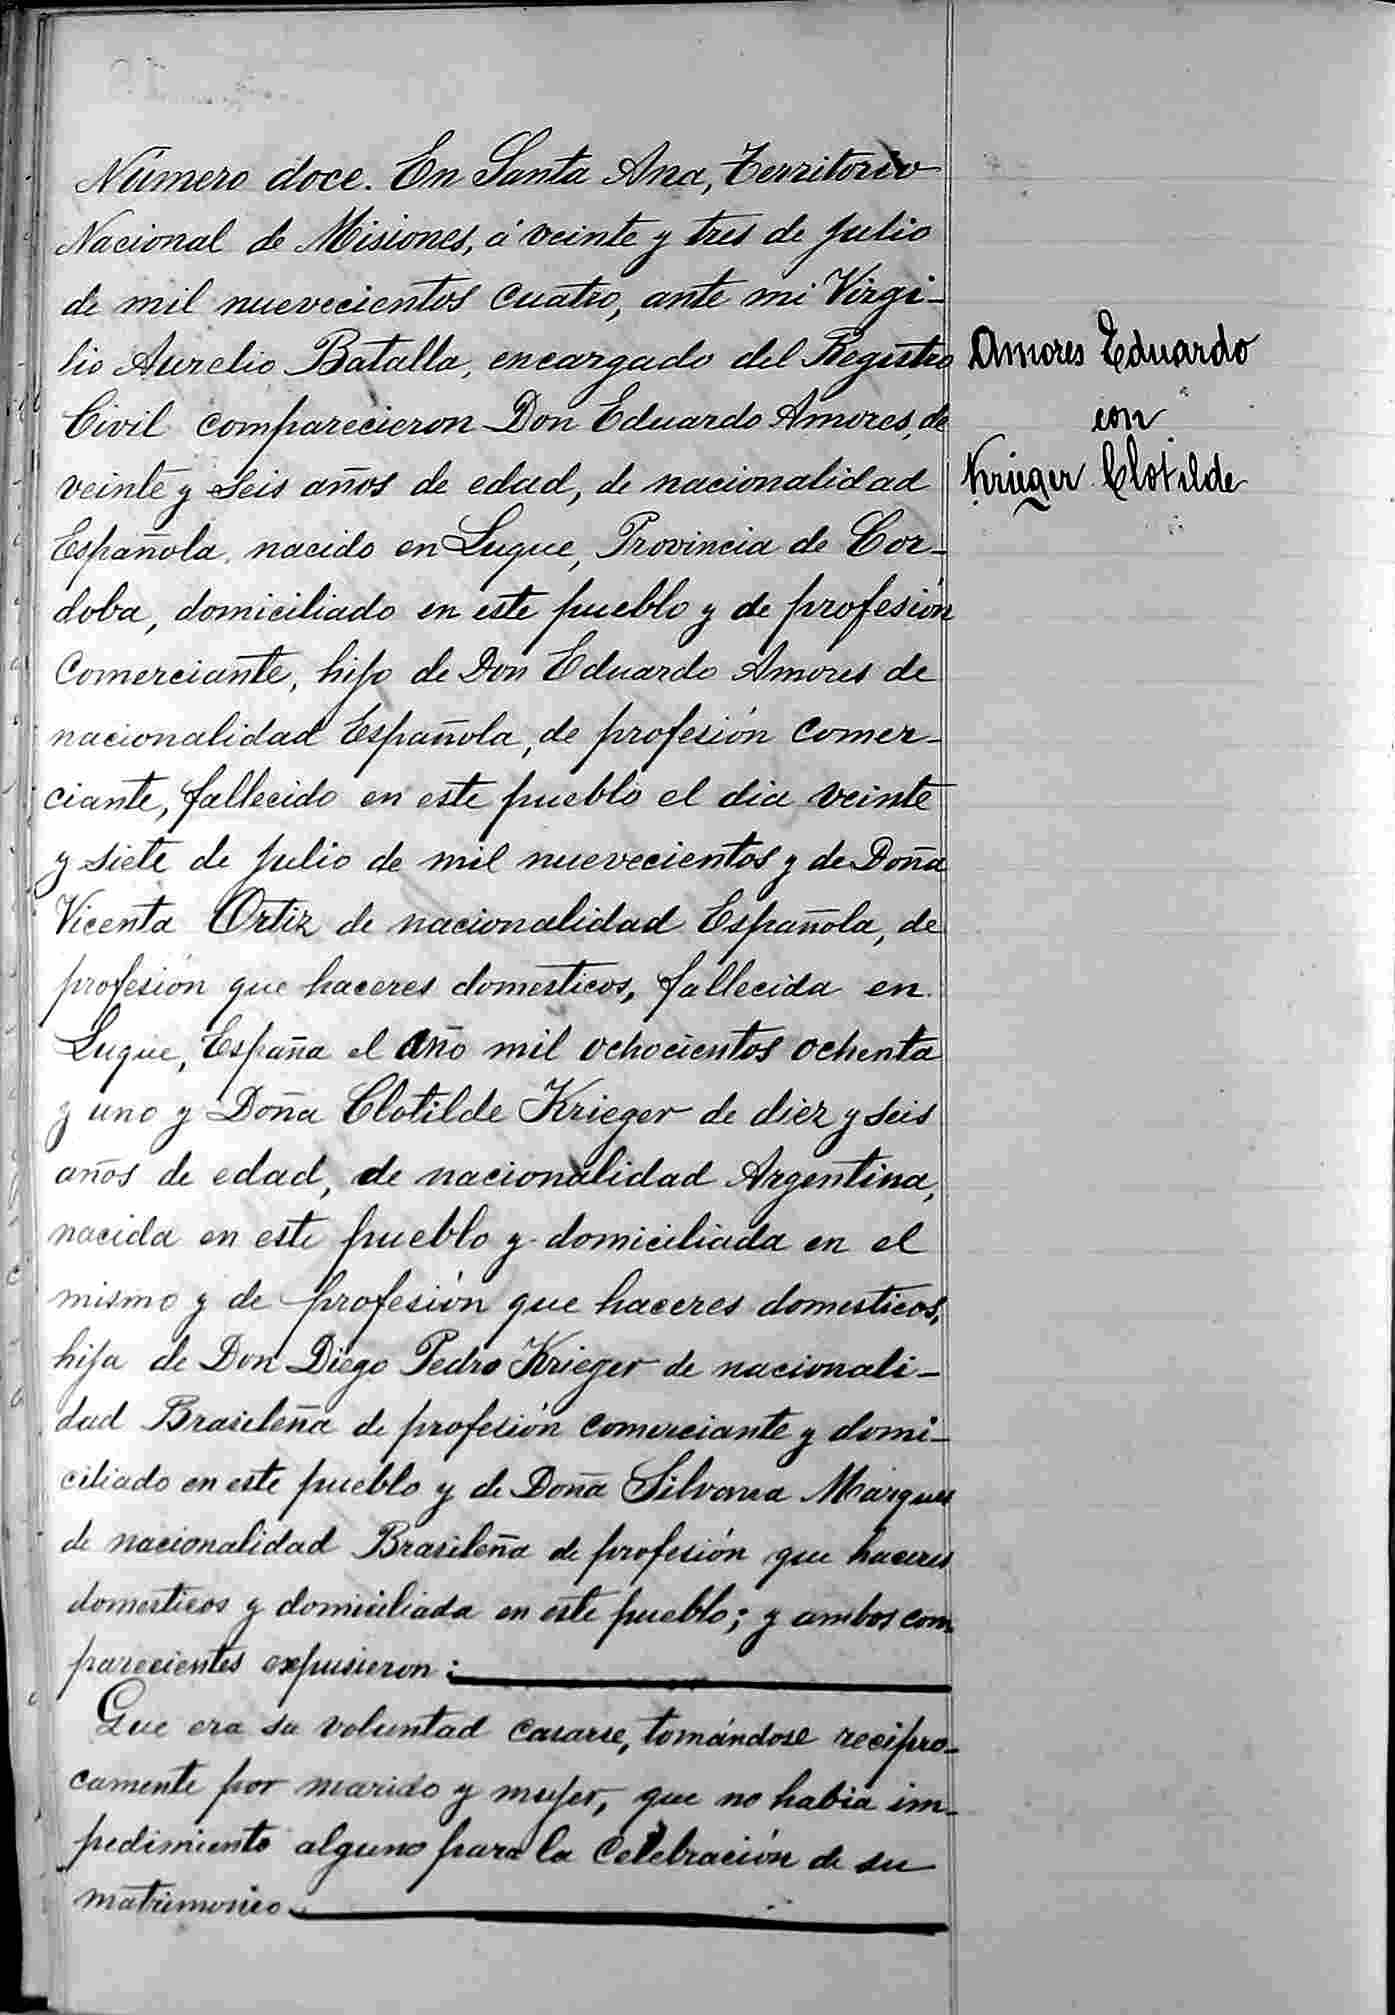 Número doce. En Santa Ana, Territorio
Nacional de Misiones, á veinte y tres de Julio
de mil nuevecientos cuatro, ante mi Virgi-
lio Aurelio Batalla, encargado del Registro
Civil comparecieron Don Eduardo Amores, de
veinte y seis años de edad, de nacionalidad
Española, nacido en Luque, Provincia de Cor-
doba, domiciliado en este pueblo y de profesión
Comerciante, hijo de Don Eduardo Amores de
nacionalidad Española, de profesión comer-
ciante, fallecido en este pueblo el dia veinte
y siete de Julio de mil nuevecientos y de Doña
Vicenta Ortiz de nacionalidad Española, de
profesión que haceres domesticos, fallecida en
Luque, España el año mil ochocientos ochenta
y uno y Doña Clotilde Krieger de diez y seis
años de edad, de nacionalidad Argentina,
nacida en este pueblo y domiciliada en el
mismo y de profesión que haceres domesticos,
hija de Don Diego Pedro Krieger de nacionali-
dad Brasileña de profesión comerciante y domi-
ciliado en este pueblo y de Doña Silvana Marques
de nacionalidad Brasileña de profesión que haceres
domesticos y domiciliada en este pueblo; y ambos com
parecientes expusieron:
Que era su voluntad casarse, tomándose recipro-
camente por marido y mujer, que no habia im-
pedimiento alguno para la celebración de su
matrimonio
Amores Eduardo
con
Krieger Clotilde